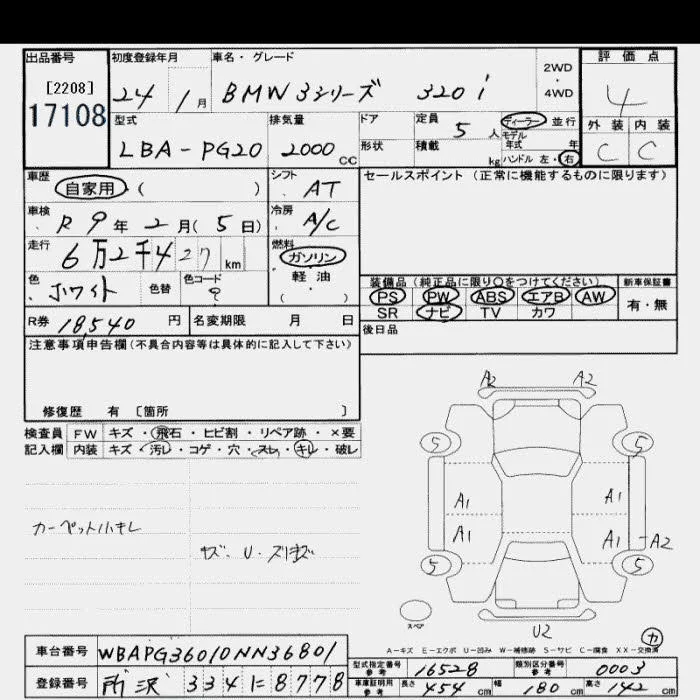 出品番号 初度登録年月 車名・グレード 評価点
[2208] 24 1月 BMW 3シリーズ 320i 2WD・4WD 4
17108
型式 排気量 ドア 定員 5人 ディーラー 並行 外装 内装
モデル年式 年
LBA-PG20 2000cc 形状 積載 kg ハンドル 左・右 C C
車歴 シフト セールスポイント (正常に機能するものに限ります)
自家用・( ) AT
車検 冷房
R9年2月(5日) A/C
走行 燃料
6万2千427km ガソリン・軽油・( )
色 色替 色コード 装備品 (純正品に限り○をつけてください) 新車保証書
ホワイト ? PS PW ABS エアB AW 有・無
SR ナビ TV カワ
R券 18,540円 名変期限 月 日 後日品
注意事項申告欄(不具合内容等は具体的に記入して下さい)
修復歴 有 〔箇所 〕
検査員 FW キズ・飛石・ヒビ割・リペア跡・×要
記入欄 内装 キズ・汚レ・コゲ・穴・スレ・キレ・破レ
A2 A2
5 5
A1 A1
A1 A1 A2
5 5
カーペット小キレ
キズ、U・スリキズ
スペア
U2
カ
A-キズ E-エクボ U-凹み W-補修跡 S-サビ C-腐食 XX-交換済
車台番号 WBAPG36010NN36801
型式指定番号 参考 16528 類別区分番号 参考 0003
登録番号 所沢 334に8778
車庫証明用 参考 長さ 454cm 幅 180cm 高さ 142cm